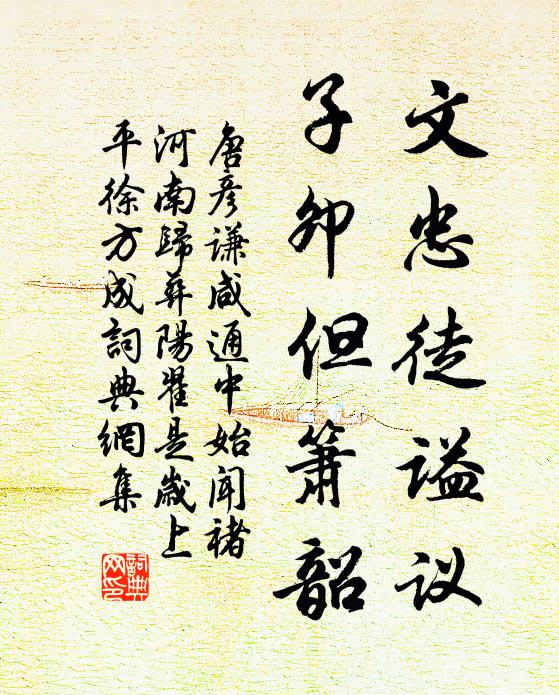 文忠徒谥议
子卯但箫韶
唐彦谦咸通中始闻褚
河南歸葬陽翟是歲上
平徐方成詞典網集
詞典网印